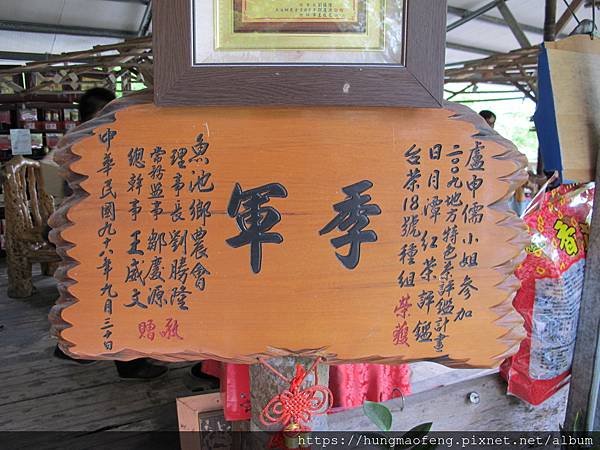 盧申儒小姐參加
二〇〇九地方特色茶評鑑計畫
日月潭紅茶評鑑
台茶18號種組 榮獲
季軍
魚池鄉農會
理事長 劉勝隆
常務監事 鄒慶源
總幹事 王威文
敬贈
中華民國九十八年九月三十日
https://hungmaofeng.pixnet.net/album